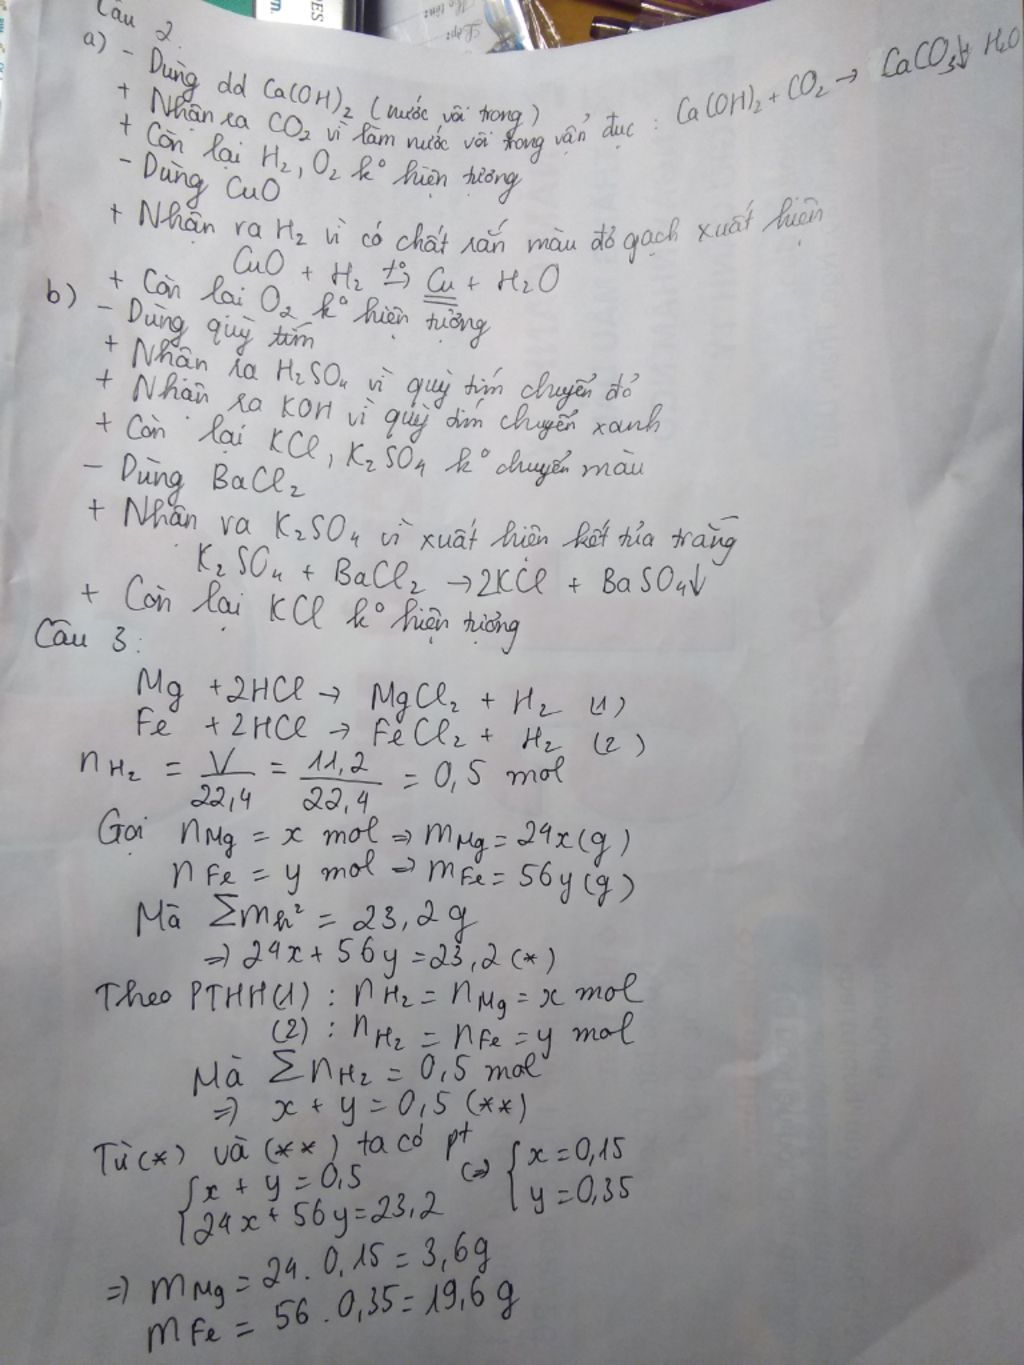 Câu 2.
a) - Dùng dd Ca(OH)2 (nước vôi trong)
+ Nhận ra CO2 vì làm nước vôi trong vẩn đục : Ca(OH)2 + CO2 → CaCO3↓ + H2O
+ Còn lại H2, O2 k° hiện tượng
- Dùng CuO
+ Nhận ra H2 vì có chất rắn màu đỏ gạch xuất hiện
CuO + H2 t°→ Cu + H2O
+ Còn lại O2 k° hiện tượng
b) - Dùng quỳ tím
+ Nhận ra H2SO4 vì quỳ tím chuyển đỏ
+ Nhận ra KOH vì quỳ tím chuyển xanh
+ Còn lại KCl, K2SO4 k° chuyển màu
- Dùng BaCl2
+ Nhận ra K2SO4 vì xuất hiện kết tủa trắng
K2SO4 + BaCl2 → 2KCl + BaSO4↓
+ Còn lại KCl k° hiện tượng
Câu 3:
Mg + 2HCl → MgCl2 + H2 (1)
Fe + 2HCl → FeCl2 + H2 (2)
nH2 = V/22,4 = 11,2/22,4 = 0,5 mol
Gọi nMg = x mol ⇒ mMg = 24x(g)
nFe = y mol ⇒ mFe = 56y(g)
Mà Σmh² = 23,2g
⇒ 24x + 56y = 23,2 (*)
Theo PTHH(1) : nH2 = nMg = x mol
(2) : nH2 = nFe = y mol
Mà ΣnH2 = 0,5 mol
⇒ x + y = 0,5 (**)
Từ (*) và (**) ta có pt
{x + y = 0,5 (⇒ {x = 0,15
{24x + 56y = 23,2 {y = 0,35
⇒ mMg = 24 . 0,15 = 3,6g
mFe = 56 . 0,35 = 19,6g